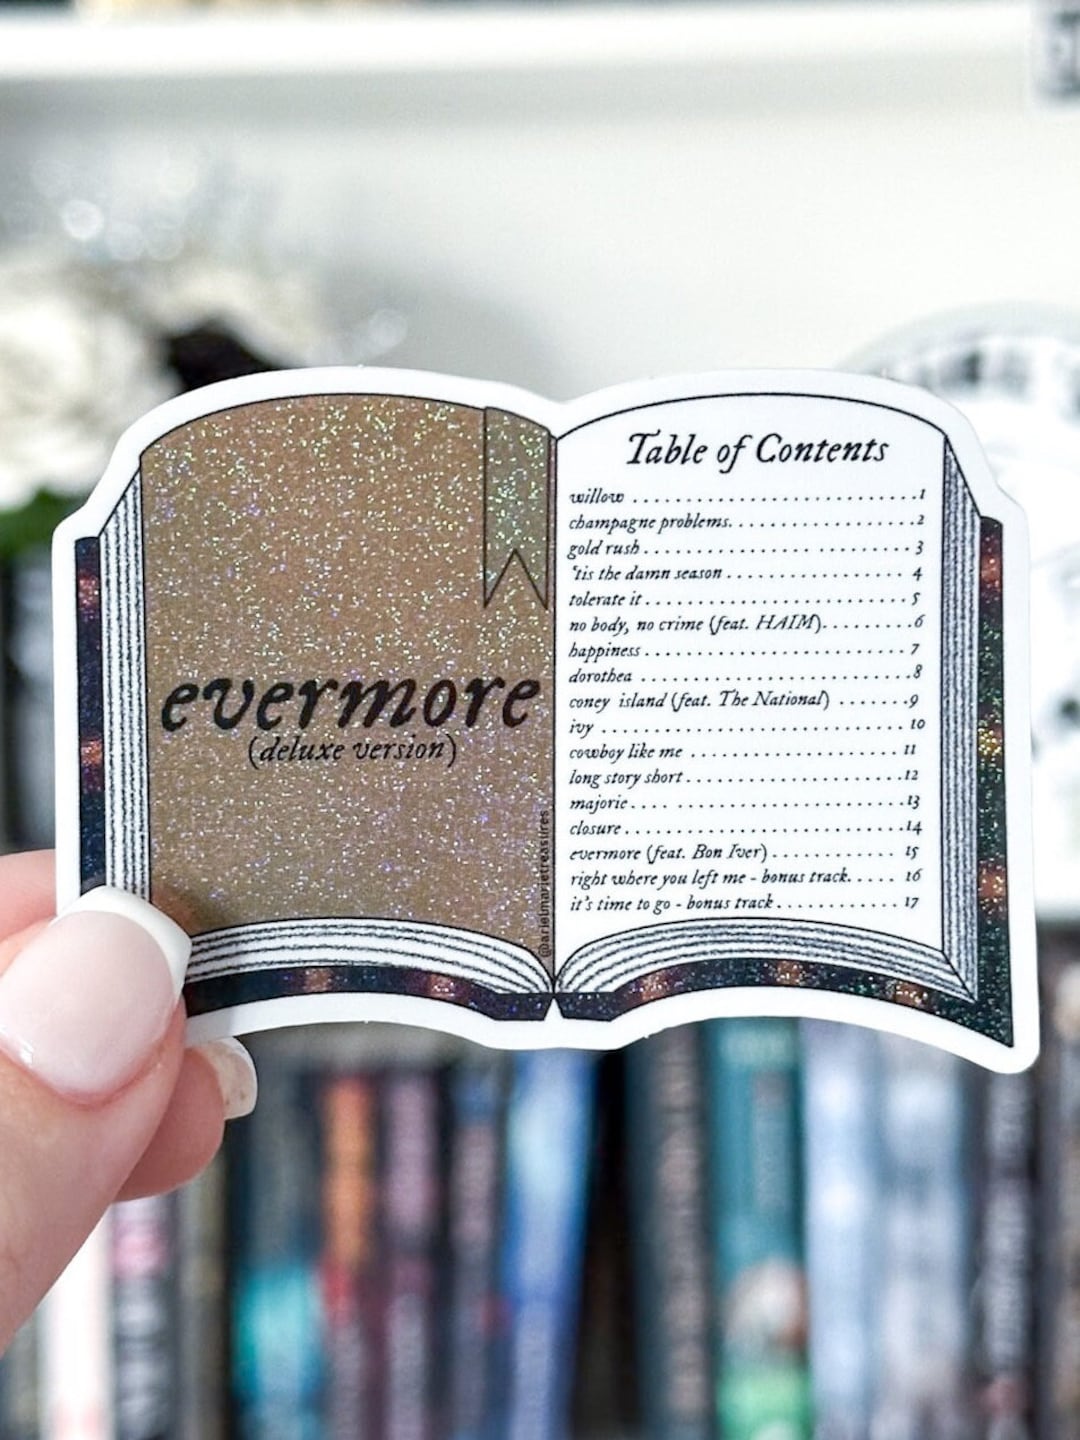 evermore
(deluxe version)
@arielmarietreasures
Table of Contents
willow ........................1
champagne problems. .................2
gold rush ....................... 3
'tis the damn season ................. 4
tolerate it ........................ 5
no body, no crime (feat. HAIM). ........6
happiness ....................... 7
dorothea ........................8
coney island (feat. The National) .......9
ivy ........................... 10
cowboy like me .................... 11
long story short ...................12
majorie .........................13
closure .........................14
evermore (feat. Bon Iver) ............ 15
right where you left me - bonus track. .... 16
it's time to go - bonus track ........... 17